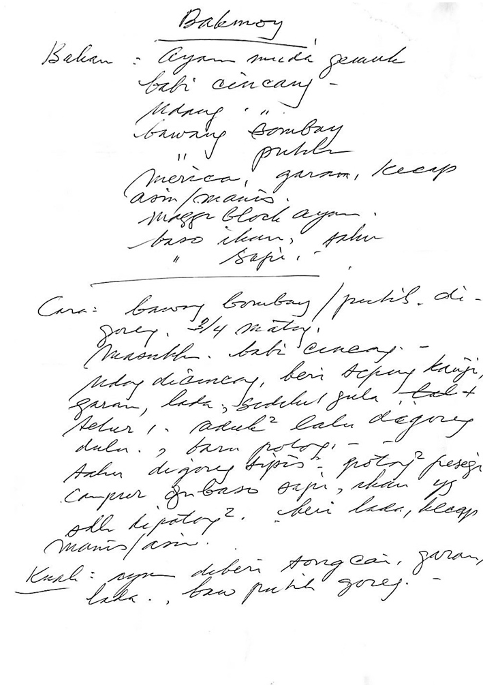 Bakmoy
Bahan : Ayam muda gemuk
babi cincang -
Udang " .
bawang bombay
" putih
merica, garam, kecap
asin/manis.
maggi block ayam.
baso ikan, tahu
" sapi. -
Cara: bawang bombay/putih. di-
goreng. 3/4 matang.
Masukkan. babi cincang. -
Udang dicincang, beri tepung kanji,
garam, lada, sedikit gula +
telur, aduk² lalu digoreng
dulu., baru potong. -
tahu digoreng potong² persegi
campur baso sapi, ikan yg
sdh dipotong². beri lada, kecap
manis/asin.
Kuah : ayam diberi tongcai, garam,
lada., baw putih goreng. -